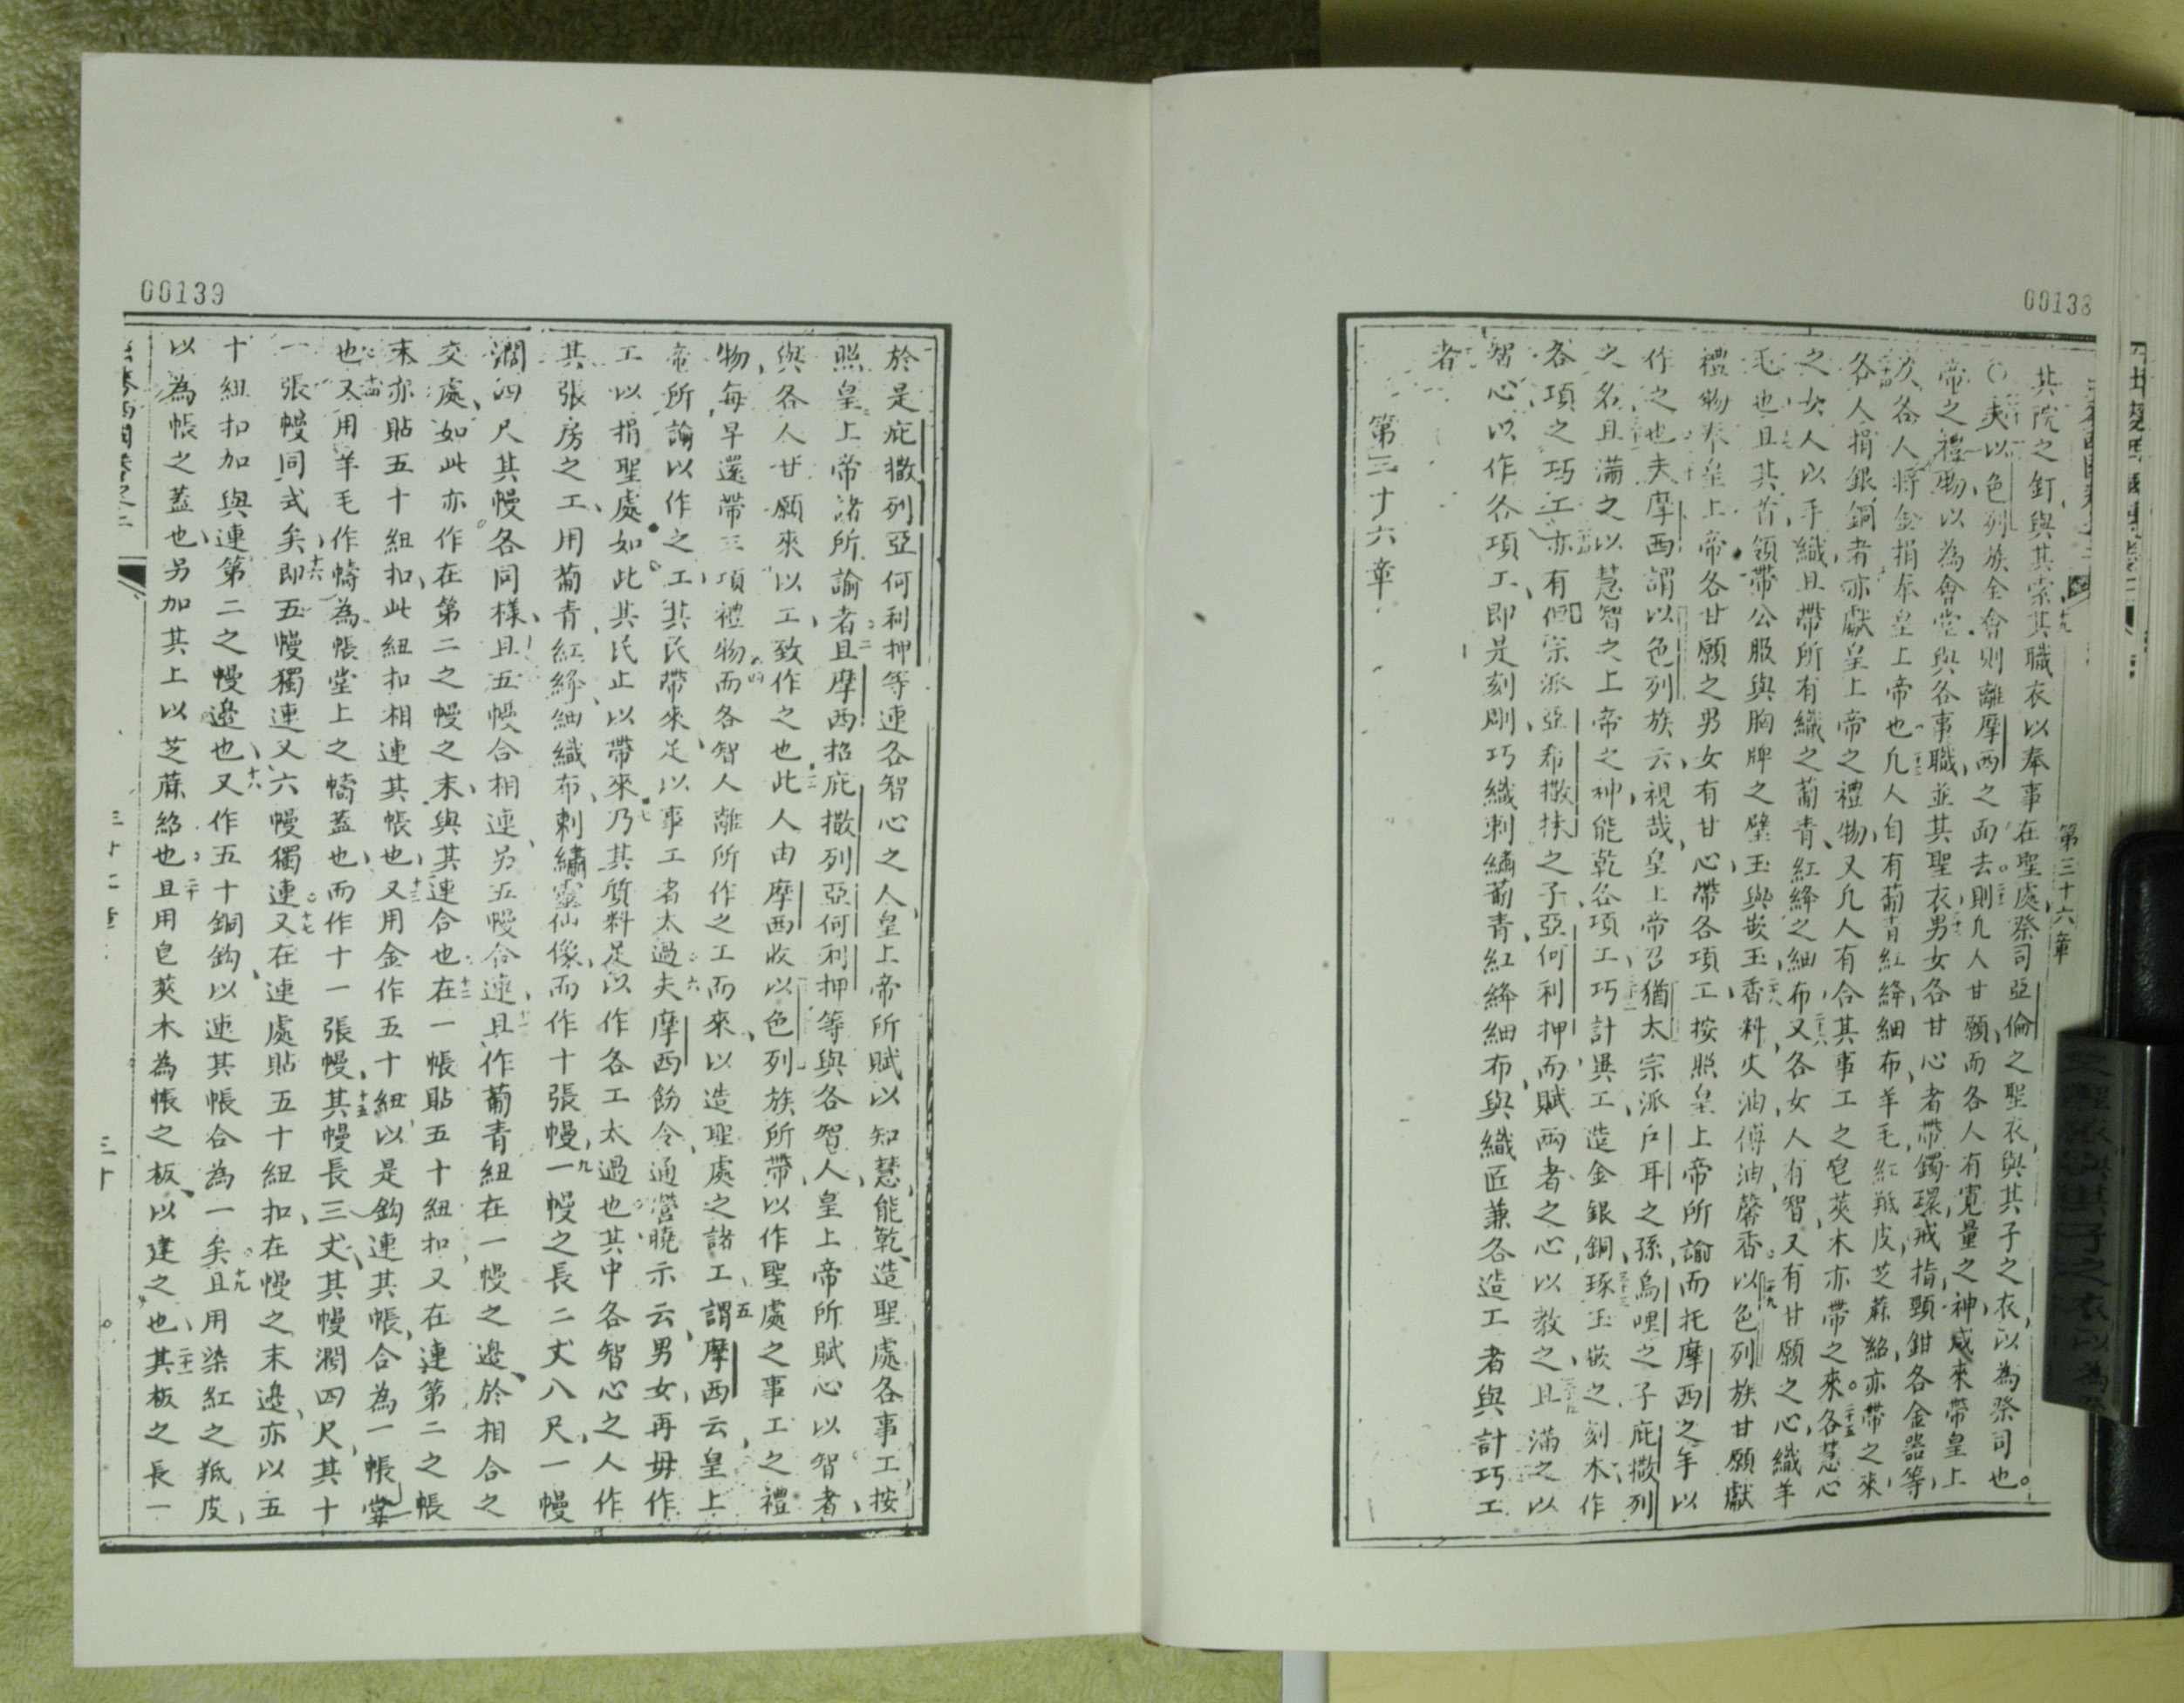 00138
第三十六章
其院之釘與其索其職衣以奉事在聖處祭司亞倫之聖衣與其子之衣以為祭司也。
○夫以色列族全會則離摩西之面去則凡人甘願而各人有寬量之神咸來帶皇上
帝之禮物以為會堂與各事職並其聖衣男女各甘心者帶鐲環戒指頸鉗各金器等
次各人將金捐奉皇上帝也凡人自有葡青紅絳細布羊毛紅羝皮芝蔴絡亦帶之來
各人捐銀銅者亦獻皇上帝之禮物又凡人有合其事工之皂莢木亦帶之來。各慧心
之女人以手織且帶所有織之葡青紅絳之細布又各女人有智又有甘願之心織羊
毛也且其首領帶公服與胸牌之璧玉與嵌玉香料火油傅油馨香以色列族甘願獻
禮物奉皇上帝各甘願之男女有甘心帶各項工按照皇上帝所諭而托摩西之手以
作之也夫摩西謂以色列族云視哉皇上帝召猶太宗派戶耳之孫烏哩之子庇撒列
之名且滿之以慧智之上帝之神能乾各項工巧計異工造金銀銅琢玉嵌之刻木作
各項之巧工亦有但宗派亞希撒抹之子亞何利押而賦兩者之心以教之且滿之以
智心以作各項工即是刻剛巧織刺繡葡青紅絳細布與織匠兼各造工者與計巧工
者
第三十六章
00139
於是庇撒列亞何利押等連各智心之人皇上帝所賦以知慧能乾造聖處各事工按
照皇上帝諸所諭者且摩西招庇撒列亞何利押等與各智人皇上帝所賦心以智者
與各人甘願來以工致作之也三此人由摩西收以色列族所帶以作聖處之事工之禮
物每早還帶三項禮物四而各智人離所作之工而來以造聖處之諸工五謂摩西云皇上
帝所諭以作之工其民帶來足以事工者太過六夫摩西飭令通營曉示云男女再毋作
工以捐聖處如此其民止以帶來七乃其質料足以作各工太過也其中各智心之人作
其張房之工用葡青紅絳細織布刺繡靈仙像而作十張幔九一幔之長二丈八尺一幔
濶四尺其幔各同樣且五幔合相連另五幔合連十一且作葡青紐在一幔之邊於相合之
交處如此亦作在第二之幔之末與其連合也十二在一帳貼五十紐扣又在連第二之帳
末亦貼五十紐扣此紐扣相連其帳也十三又用金作五十紐以是鈎連其帳合為一帳堂
也十四又用羊毛作幬為帳堂上之幬蓋也而作十一張幔十五其幔長三丈其幔濶四尺其十
一張幔同式矣十六即五幔獨連又六幔獨連十七又在連處貼五十紐扣在幔之末邊亦以五
十紐扣加與連第二之幔邊也十八又作五十銅鈎以連其帳合為一矣十九且用染紅之羝皮
以為帳之蓋也另加其上以芝蔴絡也二十且用皂莢木為帳之板以建之也二十一其板之長一